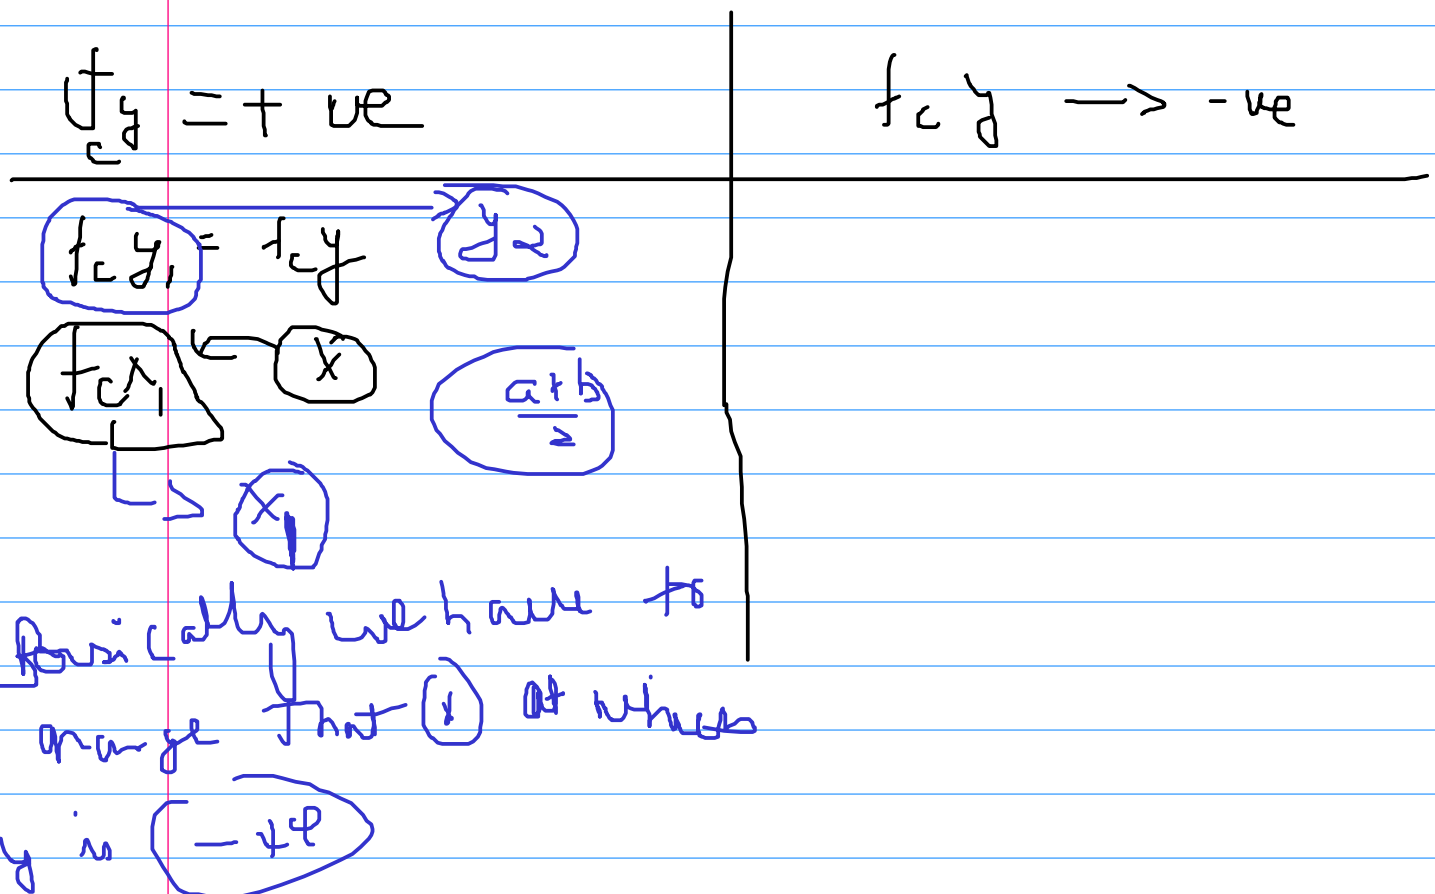 fcy = + ve
fcy → -ve
fcy1 = fcy y2
fcx1 ← x
a+b
2
x1
basically we have to
change that x at which
y is -ve